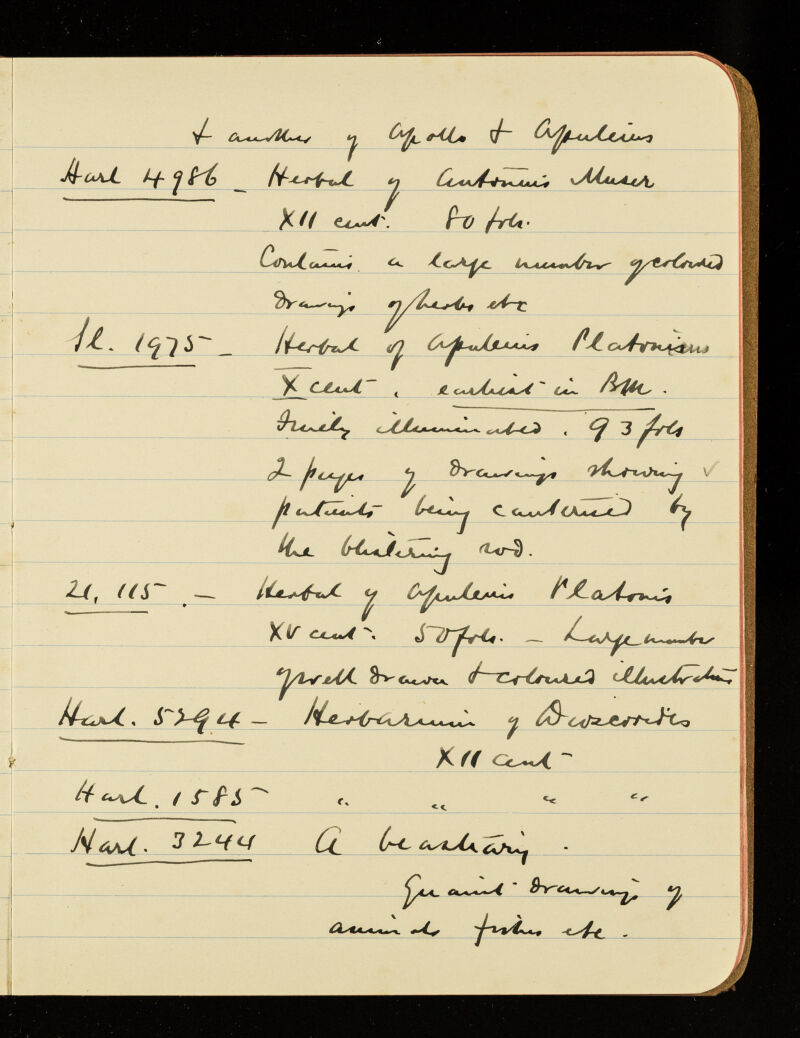 & another of Apollo & Apuleius
Harl 4986 - Herbal of Antonius Muser
XII cent. 80 fols.
Contains a large number of coloured
drawings of herbs etc
Sl. 1975 - Herbal of Apuleius Platonisus
X cent. earliest in BM.
Finely illuminated. 93 fols
2 pages of drawings showing ✓
patients being cauterised by
the blistering rod.
21,115. - Herbal of Apuleius Platonis
XV cent. 50 fols. - Large number
of well drawn & coloured illustrations
Harl. 5294 - Herbarium of Dioscorides
XII cent
Harl. 1585 " " " "
Harl. 3244 A beastiary.
Quaint drawings of
animals fishes etc.